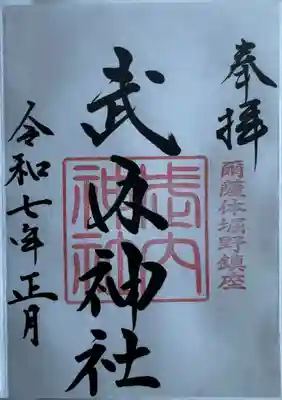 奉拝
爾薩体堀野鎮座
武内神社
武内神社
令和七年正月